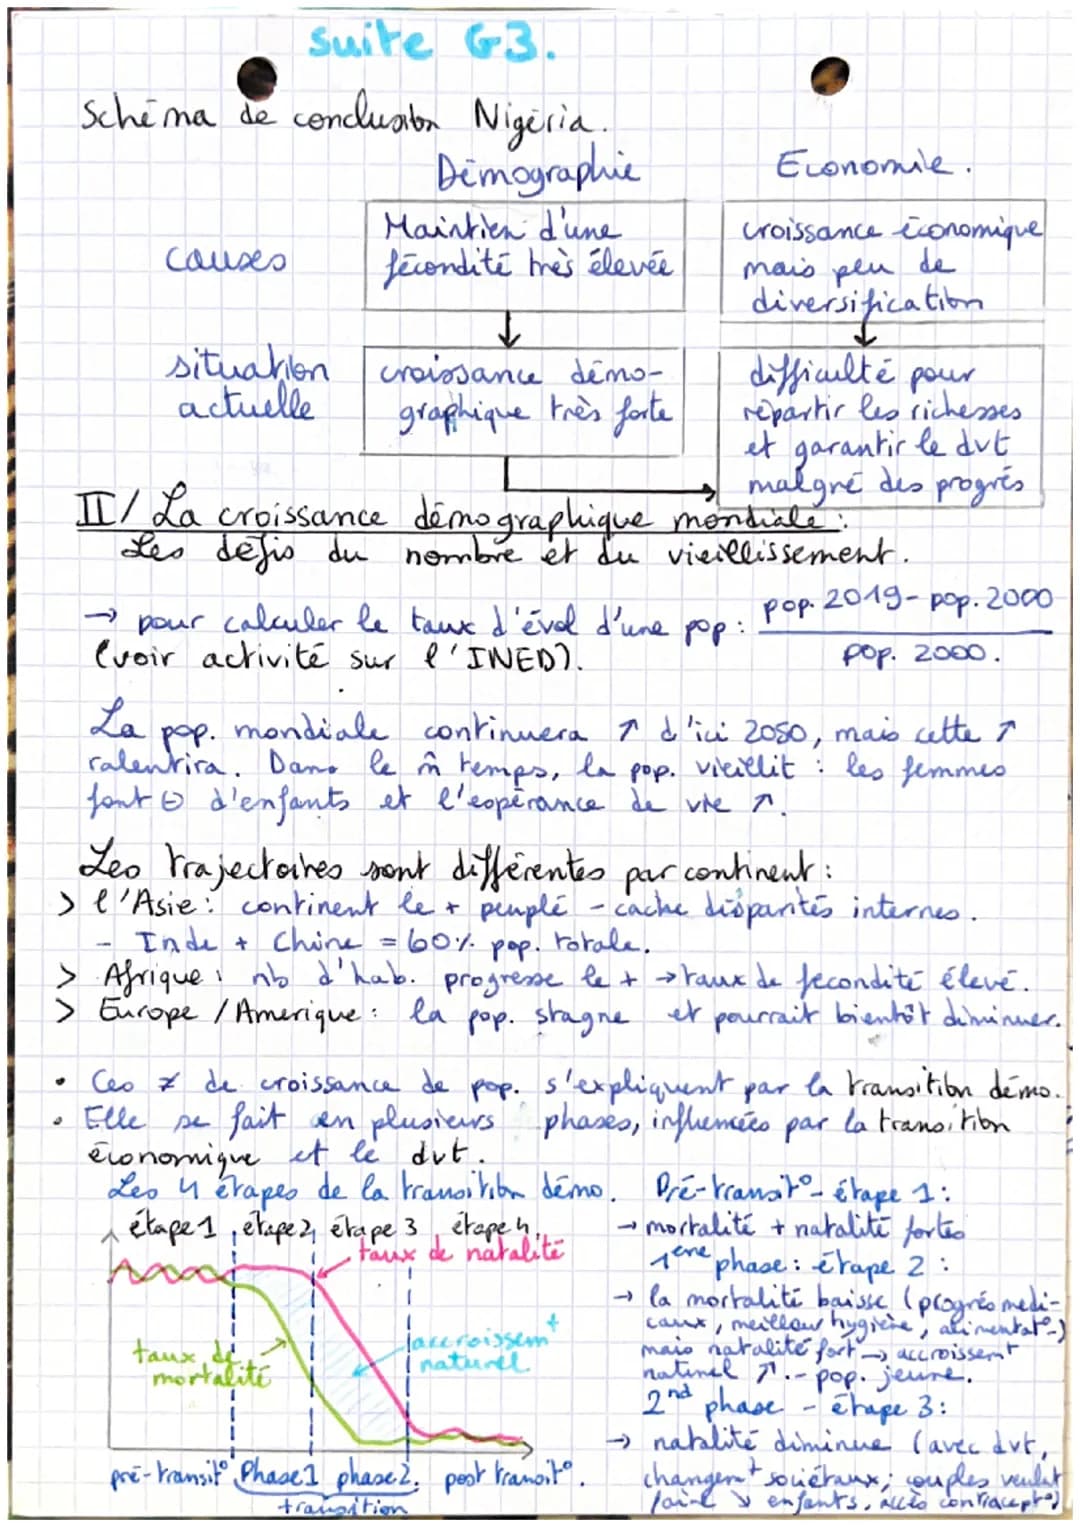 suite G3.
Schéma de conclusion Nigéria.
Démographie
Economie.
causes
Maintien d'une
fécondité très élevée
croissance économique
mais peu de
diversification
situation
actuelle
croissance démo-
graphique très forte
difficulté pour
répartir les richesses
et garantir le dvt
malgré des progrès
II/ La croissance démographique mondiale :
Les défis du nombre et du vieillissement.
→ pour calculer le taux d'évol d'une pop : pop. 2019 - pop. 2000
(voir activité sur l'INED). pop. 2000.
La pop. mondiale continuera ↗ d'ici 2050, mais cette ↗
ralentira. Dans le m̂ temps, la pop. vieillit : les femmes
font ⊖ d'enfants et l'espérance de vie ↗.
Les trajectoires sont différentes par continent :
> l'Asie : continent le + peuplé - cache disparités internes.
- Inde + Chine = 60% pop. totale.
> Afrique : nb d'hab. progresse le + → taux de fécondité élevé.
> Europe / Amérique : la pop. stagne et pourrait bientôt diminuer.
• Ces ≠ de croissance de pop. s'expliquent par la transition démo.
• Elle se fait en plusieurs phases, influencées par la transition
économique et le dvt.
Les 4 étapes de la transition démo.
étape 1 étape 2 étape 3 étape 4
taux de natalité
taux de
mortalité
accroissemt
naturel
pré-transit° Phase 1 phase 2. post transit°.
transition
Pré-transit° - étape 1 :
→ mortalité + natalité fortes
1ère phase : étape 2 :
→ la mortalité baisse (progrès médi-
caux, meilleur hygiène, alimentat°-)
mais natalité fort → accroissemt
naturel ↗. - pop. jeune.
2nd phase - étape 3 :
→ natalité diminue (avec dvt,
changemt sociétaux; couples veulent
faire ↘ enfants, accès contracept°)